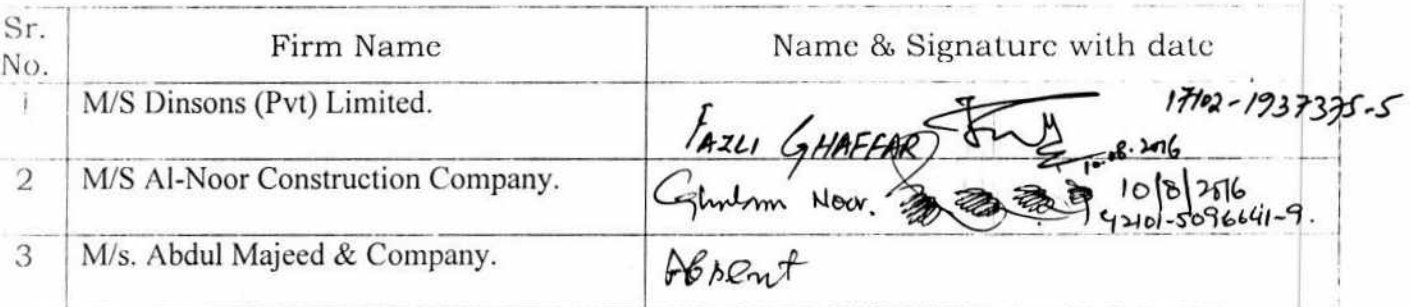 Sr. No. Firm Name Name & Signature with date
1 M/S Dinsons (Pvt) Limited. FAZLI GHAFFAR 17102-1937375-5
10.08.2016
2 M/S Al-Noor Construction Company. Ghulam Noor. 10/8/2016
42101-5096641-9.
3 M/s. Abdul Majeed & Company. Absent